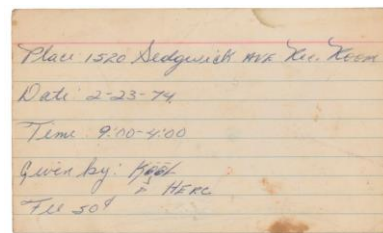 Place: 1520 Sedgwick AVE Rec. Room
Date: 2-23-74
Time: 9:00-4:00
Given by: Kool
HERC
Fee 50¢